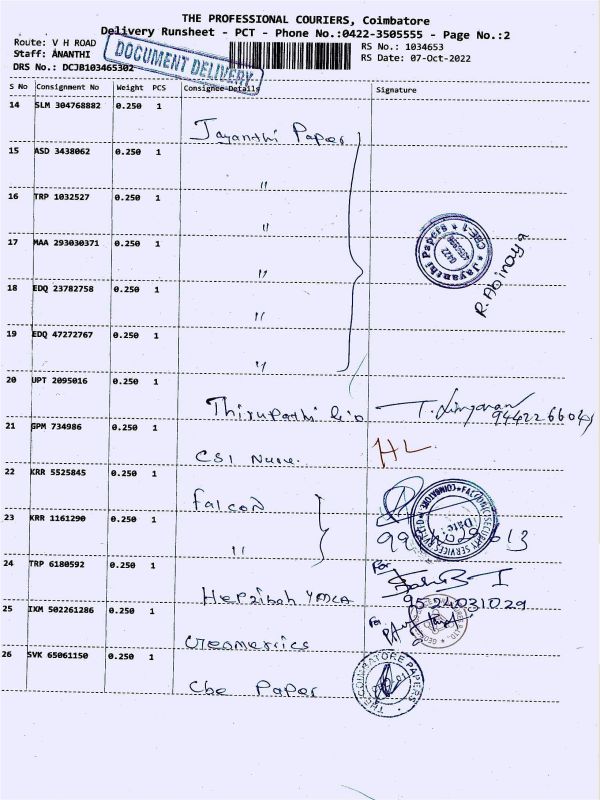 THE PROFESSIONAL COURIERS, Coimbatore
Delivery Runsheet - PCT - Phone No.:0422-3505555 - Page No.:2
Route: V H ROAD
RS No.: 1034653
Staff: ANANTHI
RS Date: 07-Oct-2022
DRS No.: DCJB103465302
DOCUMENT DELIVERY
S No Consignment No Weight PCS Consignee Details Signature
14 SLM 304768882 0.250 1
Jayanthi Paper
15 ASD 3438062 0.250 1
"
16 TRP 1032527 0.250 1
"
17 MAA 293030371 0.250 1
"
Jayanthi Papers ★ CBE-1 ★
R. Abinaya
18 EDQ 23782758 0.250 1
"
19 EDQ 47272767 0.250 1
"
20 UPT 2095016 0.250 1
Thirupathi
21 GPM 734986 0.250 1
CSI HL
22 KRR 5525845 0.250 1
falcon
23 KRR 1161290 0.250 1
"
Date:
24 TRP 6180592 0.250 1
For
Hepzibah YMCA 9524031029
25 IXM 502261286 0.250 1
For
Creamerrics
26 SVK 65061150 0.250 1
Cbe Paper
THE COIMBATORE PAPERS